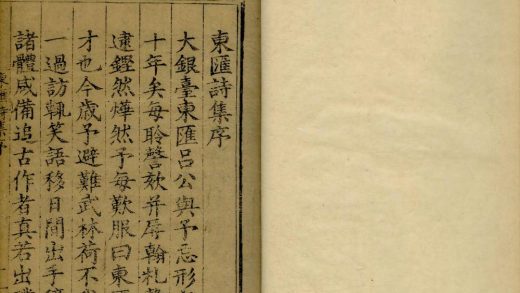 東匯詩集序
大銀臺東匯吕公與予忘形
十年矣每聆謦欬并辱翰札
逮鏗然燁然予每歎服曰東
才也今歲予避難武林荷不
一過訪輒笑語移日間出手
諸體咸備追古作者真若出
東匯詩集序